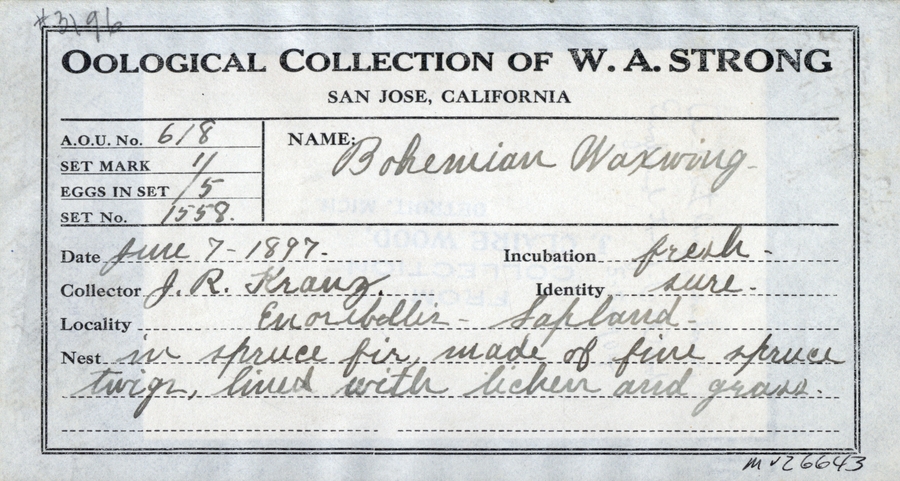 #3196
OOLOGICAL COLLECTION OF W. A. STRONG
SAN JOSE, CALIFORNIA
A.O.U. No. 618
SET MARK 1/
EGGS IN SET /5
SET No. 1558.
NAME: Bohemian Waxwing-
Date June 7-1897. Incubation fresh.
Collector J. R. Kranz. Identity sure.
Locality - Lapland-
Nest in spruce fir, made of fine spruce
twigs, lined with lichen and grass.
mv26643